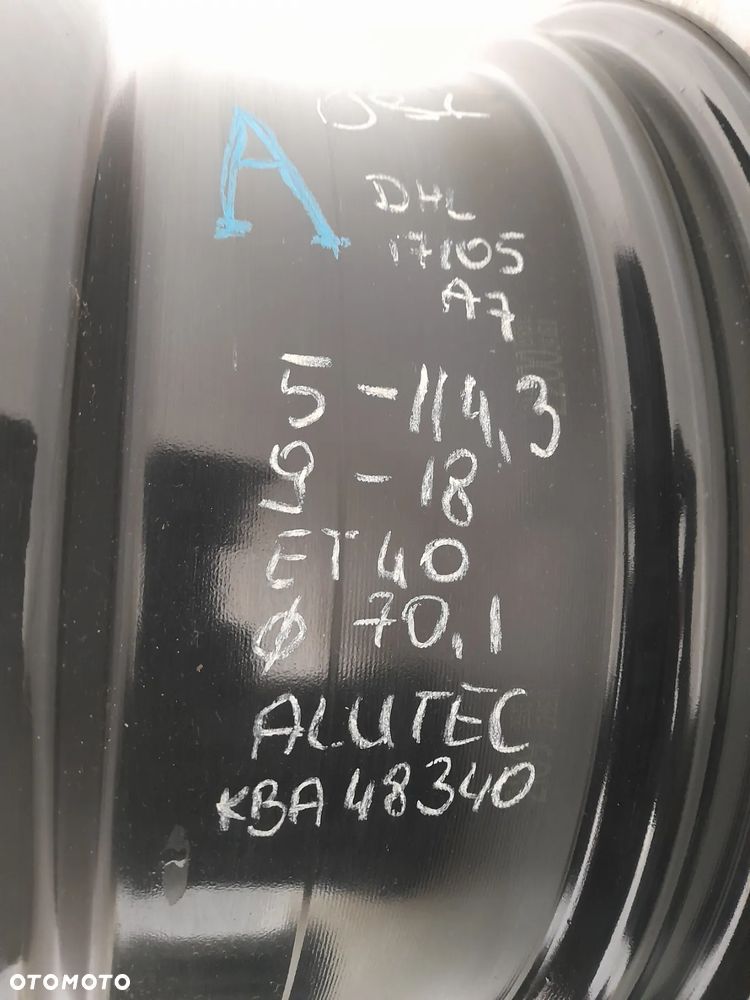 A
DHL
17105
A7
5-114,3
9-18
ET40
Ø 70,1
ALUTEC
KBA48340
OTOMOTO